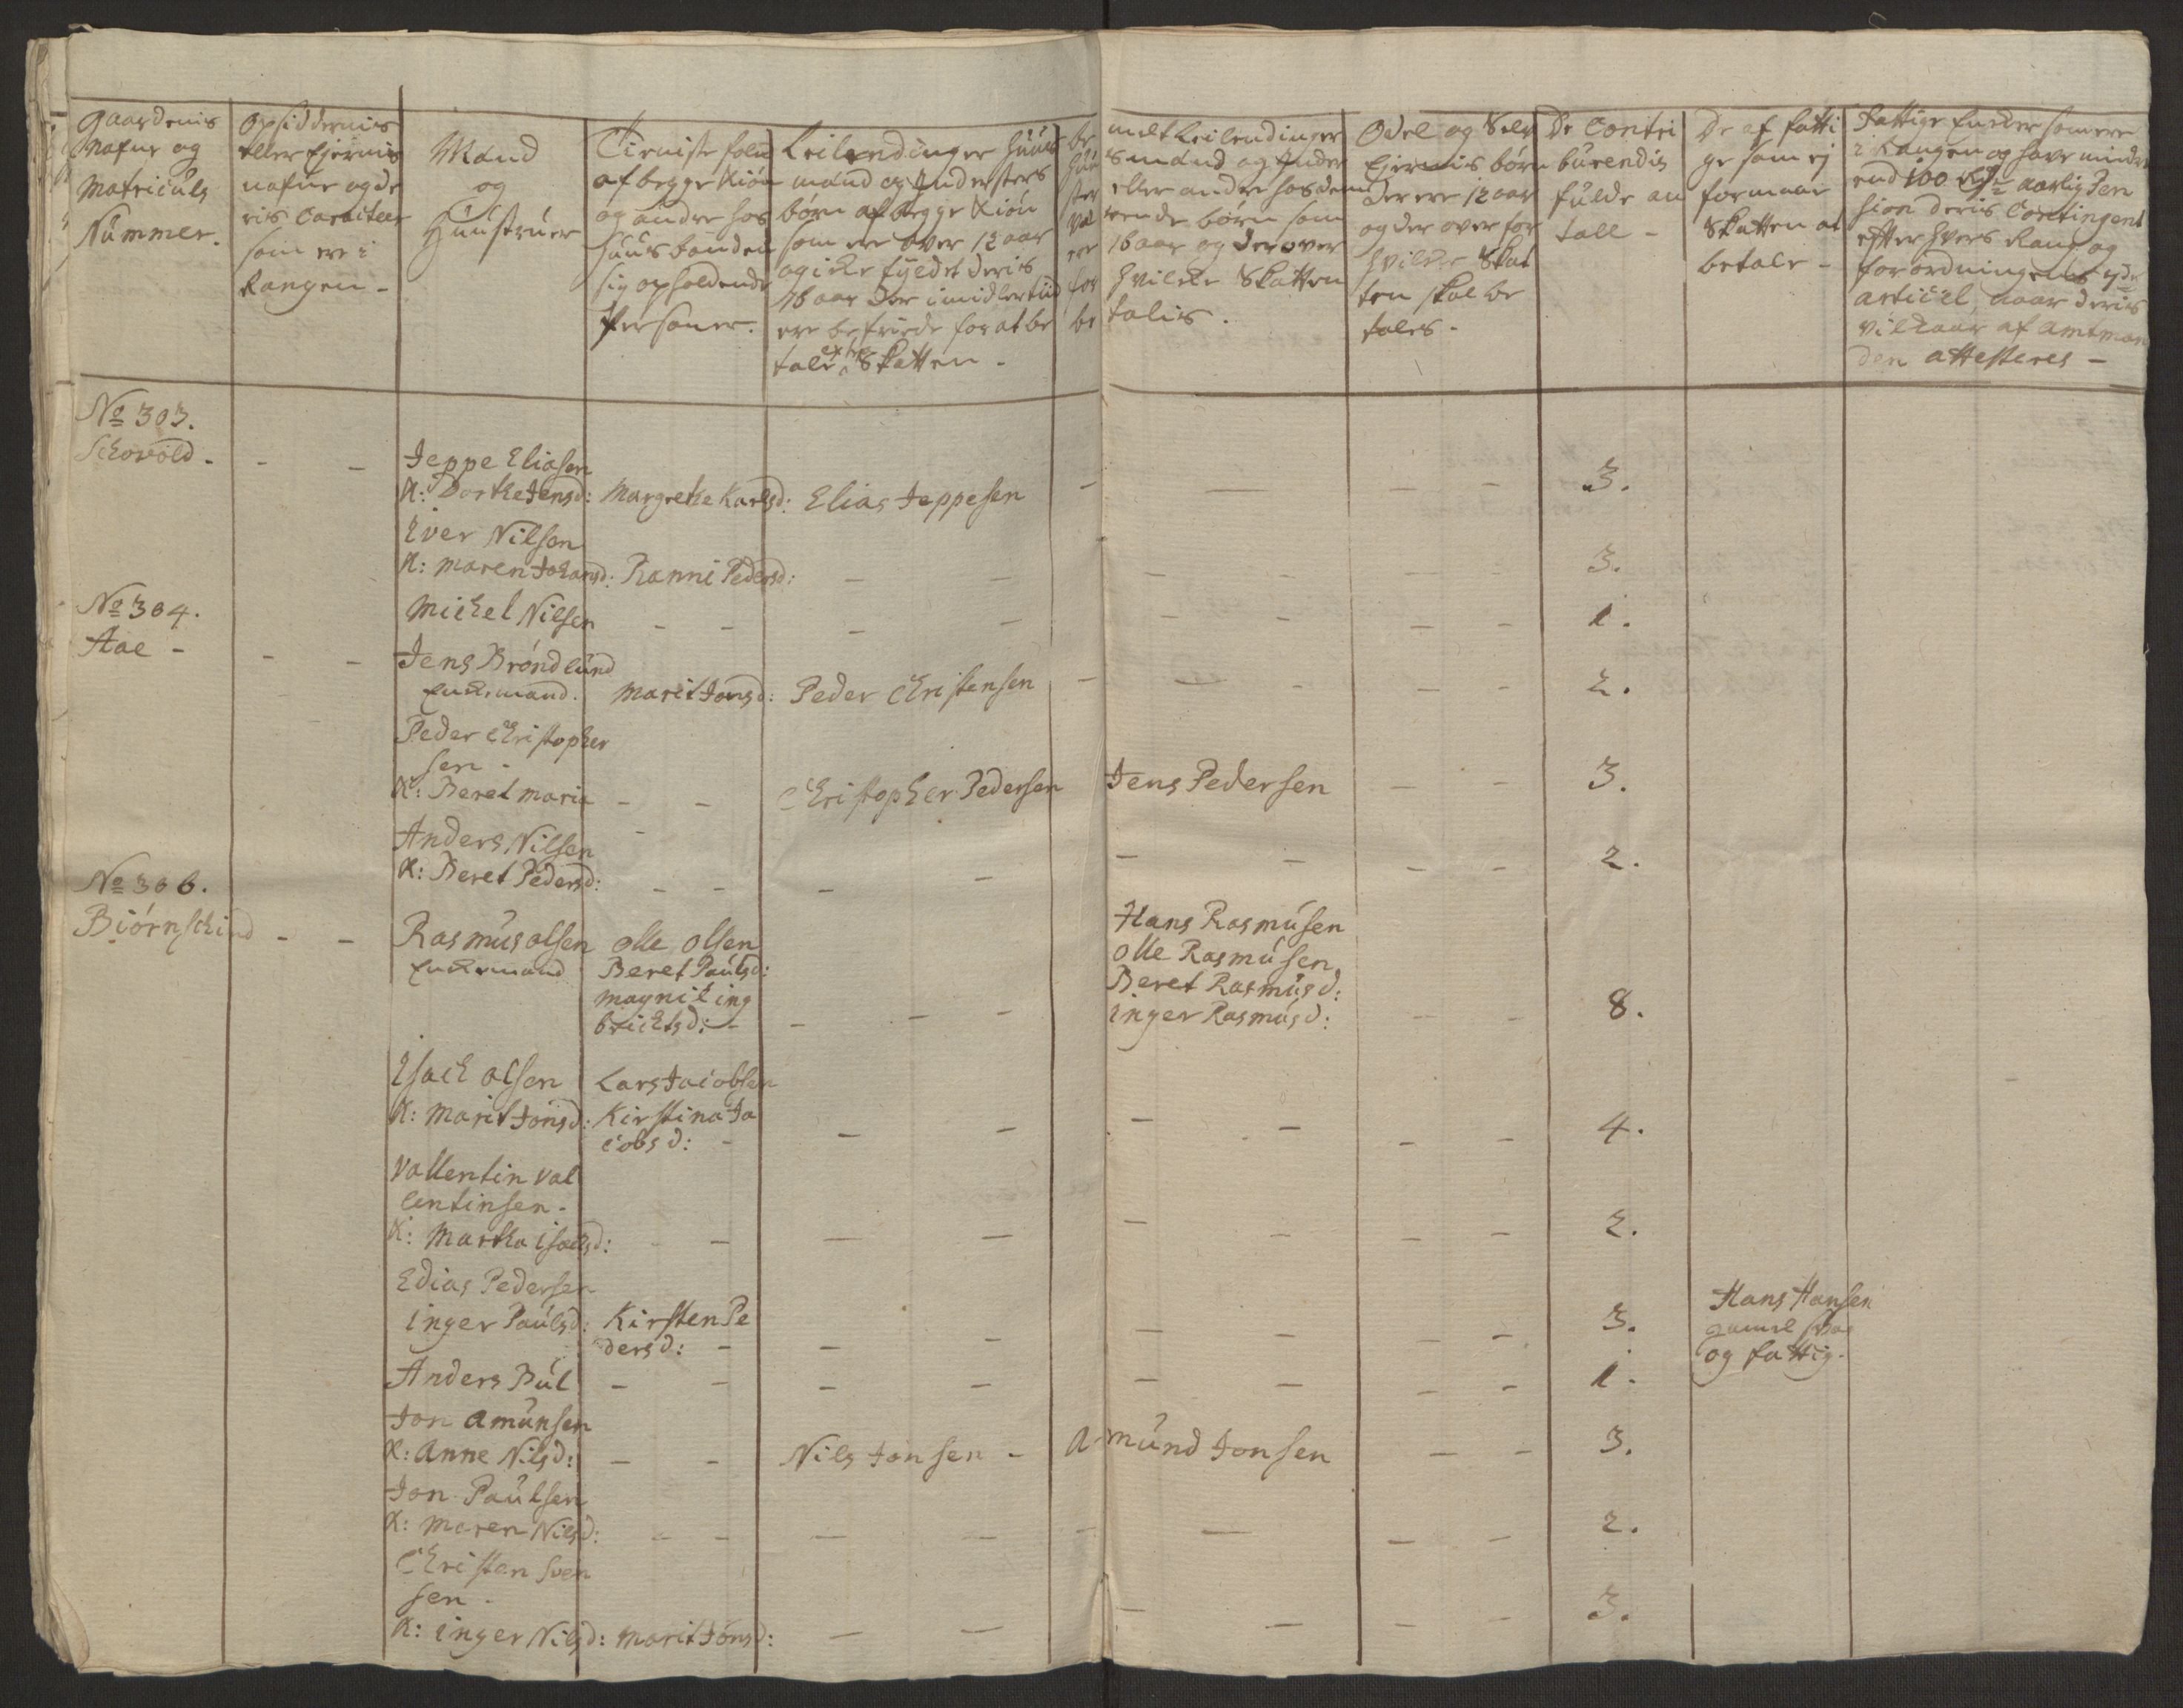 Gaardenis
Nafne og
Matriculs
Nummer.
Opsiddernis
eller Ejernis
nafne og de
ris Caracteer
som ere i
Rangen -
Mand
og
Huustruer
Tieniste folck
af begge Kiön
og andre hos
huusbonden
sig opholdende
Personer.
Leilendinger Huus
mand og Inderster
börn af begge Kiön
som ere over 12 aar
og icke fyldt deris
16 aar der imidlertiid
ere befriede for at be
tale extra Skatten -
be
Huu
ster
va
er
for
be
melt Leilendinger
smand og Inder
eller andre hos dem
rende börn som
16 aar og der over
hvilcke Skatten
talis.
Odel og Selv
Ejernis börn
der ere 12 aar
og der over for
hvilcke Skat
ten skal be
tales -
De Contri
buerendis
fulde an
tall -
De af fatti
ge som ej
formaar
Skatten at
betale -
Fattige Encker som ere
i Rangen og have mindre
end 100 Rdr aarlig Pen
sion deris Contingent
efter hvers Rang og
forordningens 4de
articul, naar deris
vilkaar af amtman
den attesteres -
No 303.
Schovold - - -
Jeppe Eliasen
K: Dorthe Jensd: Margrethe Karlsd: Elias Jeppesen - - - - 3.
Iver Nilsen
K: Maren Johansd: Ranni Pedersd: - - - - - - 3.
No 304.
Michel Nilsen - - - - - - - - 1.
Aae - - -
Jens Bröndlund
Enckemand. Marit Jonsd: Peder Christensen - - - - - 2.
Peder Christopher
sen -
K: Beret Maria - - Christopher Pedersen Jens Pedersen - - 3.
Anders Nilsen -
K: Beret Pedersd: - - - - - - - - 2.
No 306.
Biörnschind - - Rasmus Olsen Olle Olsen Hans Rasmusen
Enckemand Beret Paulsd: Olle Rasmusen
Magnil ing Beret Rasmusd:
brichtsd: - - - - Inger Rasmusd: - - 8.
Isach Olsen Lars Jacobsen
K: Marit Jonsd: Kirstina Ja
cobsd: - - - - - - - 4.
Vallentin Val
lentinsen -
K: Martha Isachsd: - - - - - - - - 2.
Edias Pedersen
Inger Paulsd: Kirsten Pe
dersd: - - - - - - - 3.
Hans Hansen
gamel
og fattig.
Anders Bul - - - - - - - - 1.
Jon Amunsen
K: Anne Nilsd: - - Nils Jonsen - Amund Jonsen - - 3.
Jon Paulsen
K: Maren Nilsd: - - - - - - - - 2.
Christen Sven
sen -
K: Inger Nilsd: Marit Jönsd: - - - - - - 3.